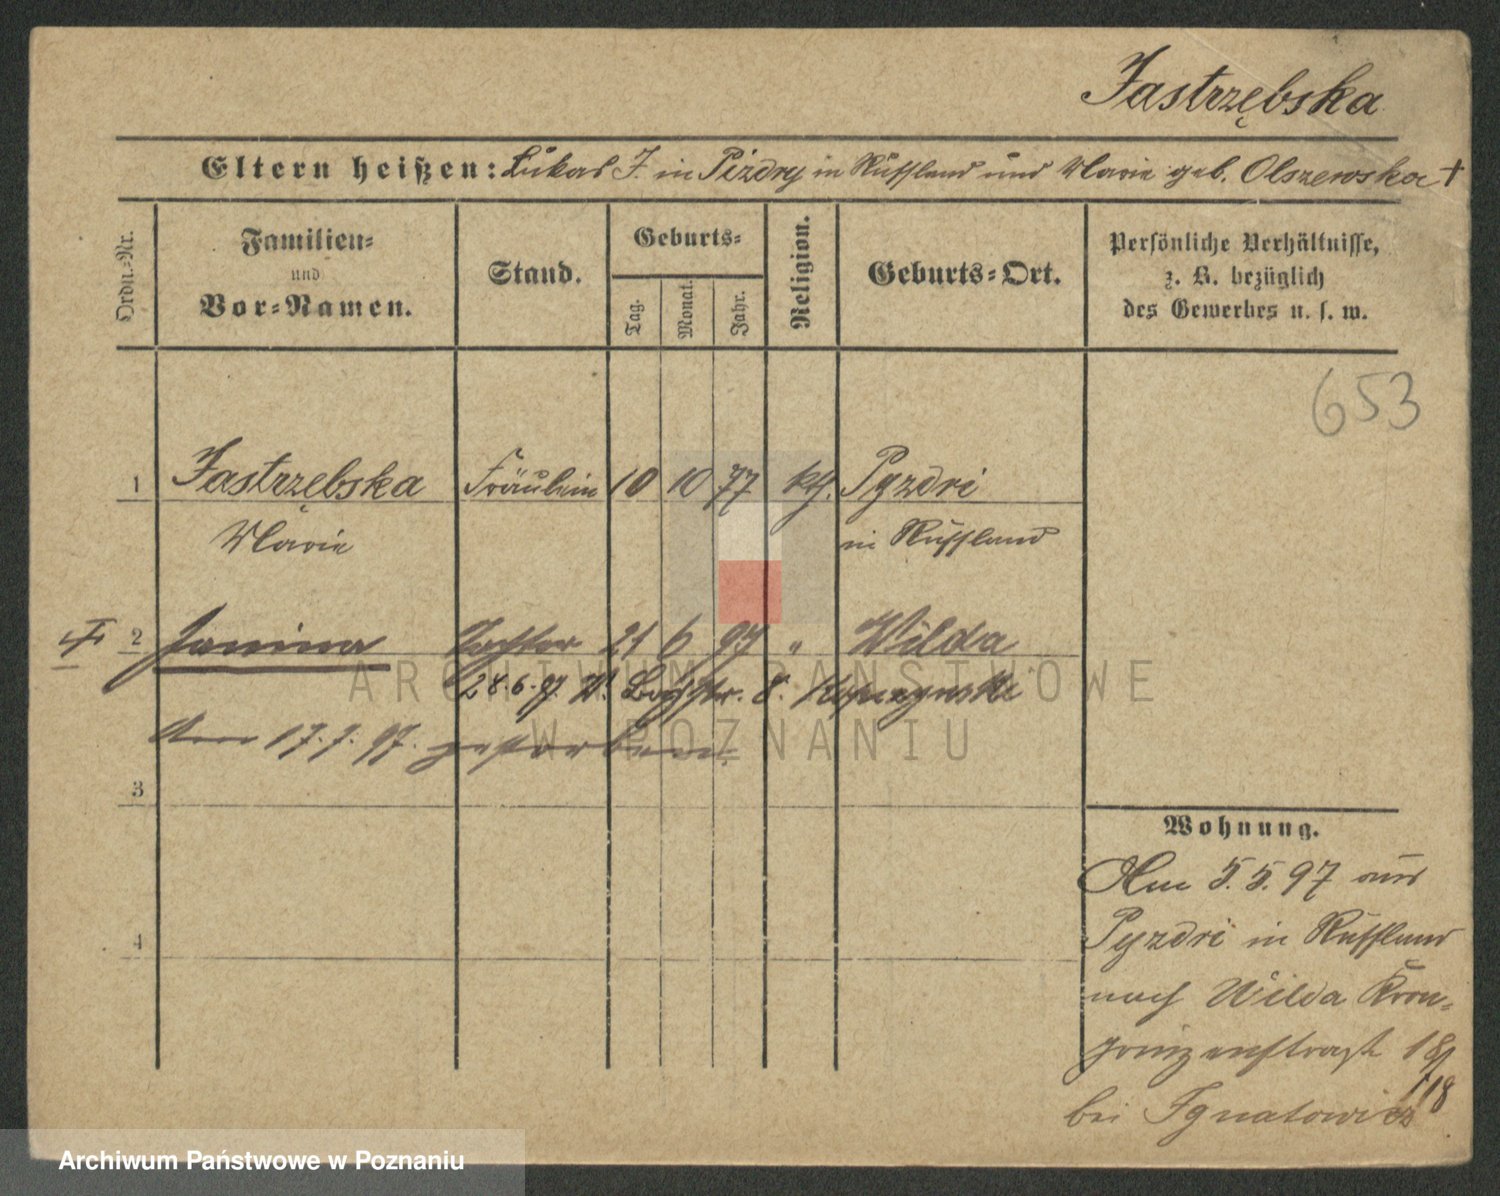 Jastrzębska
Eltern heißen: Lukas J. in Pizdry in Rußland und Marie geb. Olszewska †
Ordn.-Nr.
Familien-
und
Vor-Namen.
Stand.
Geburts-
Tag.
Monat.
Jahr.
Religion.
Geburts-Ort.
Persönliche Verhältnisse,
z. B. bezüglich
des Gewerbes u. s. w.
653
1 Jastrzębska Fräulein 10 10 77 kth. Pyzdri
Marie in Rußland
2 Janina Tochter 21 6 97 " Wilda
28.6.97 Bachstr. 8.
Am 17.7.97. gestorben
3
4
Wohnung.
Am 5.5.97 aus
Pyzdri in Rußland
nach Wilda Kron-
prinzenstraße 18/
118
bei Ignatowicz
ARCHIWUM PAŃSTWOWE
W POZNANIU
Archiwum Państwowe w Poznaniu